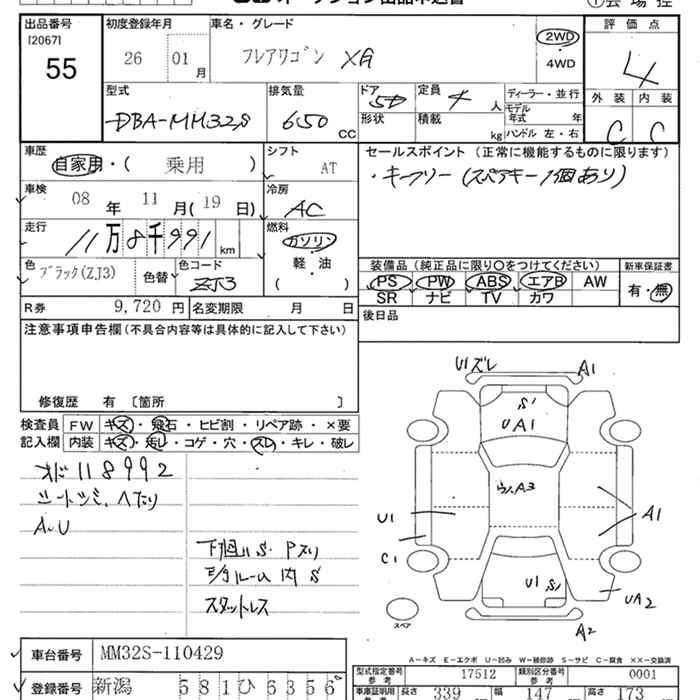 出品番号
[2067]
55
初度登録年月
26 01 月
車名・グレード
フレアワゴン XG
2WD
4WD
評価点
4
外装 内装
C C
型式
DBA-MM32S
排気量
650 CC
ドア
形状
定員
4 人
積載
kg
ディーラー・並行
モデル年式 年
ハンドル 左・右
車歴
自家用・( 乗用 )
シフト
AT
セールスポイント (正常に機能するものに限ります)
・キーフリー (スペアキー1個あり)
車検
08 年 11 月 ( 19 日)
冷房
AC
走行
11万8千991 km
燃料
ガソリン
軽・油
( )
色
ブラック(ZJ3)
色替
色コード
ZJ3
装備品 (純正品に限り〇をつけてください)
新車保証書
PS PW ABS エアB AW
有・無
SR ナビ TV カワ
R券 9,720 円
名変期限 月 日
後日品
注意事項申告欄 (不具合内容等は具体的に記入して下さい)
修復歴 有 〔箇所 〕
検査員
記入欄
FW キズ・飛石・ヒビ割・リペア跡・×要
内装 キズ・汚レ・コゲ・穴・スレ・キレ・破レ
オド118992
シートシミ、ヘたり
A、U
下廻りS、Pズリ
Eタルーム内S
スタットレス
U1ズレ A1
S1
UA1
ウ、A3
U1
A1
C1
U1 S1
UA2
A2
スペア
車台番号 MM32S-110429
登録番号 新潟 581ひ6356
A−キズ E−エクボ U−凹み W−補修跡 S−サビ C−腐食 ××−交換済
型式指定番号 参考 17512 類別区分番号 参考 0001
車庫証明用 参考 長さ 339 幅 147 高さ 173